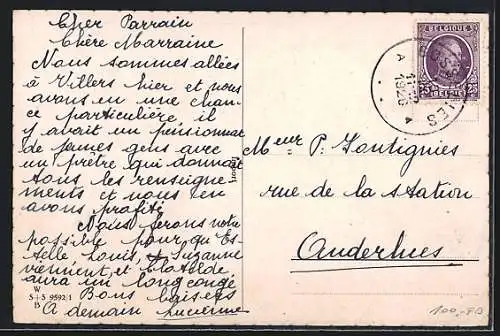 Cher Parrain
Chère Marraine
Nous sommes allées
à Villers hier et nous
avons eu une chan-
ce particulière, il
y avait un pensionnat
de jeunes gens avec
un prêtre qui donnait
tous les renseigne
ments et nous en
avons profité
Nous ferons notre
possible pour qu'Es-
telle Louis, Suzanne
viennent, et Clotilde
aura un long congé
Bons baisers
A demain Lucienne
W
S+S 9592/1
B
Import
BELGIQUE
BELGIË
25 25
A 1926 A
Mr P. Fontignies
rue de la station
Anderlues
100,-FB